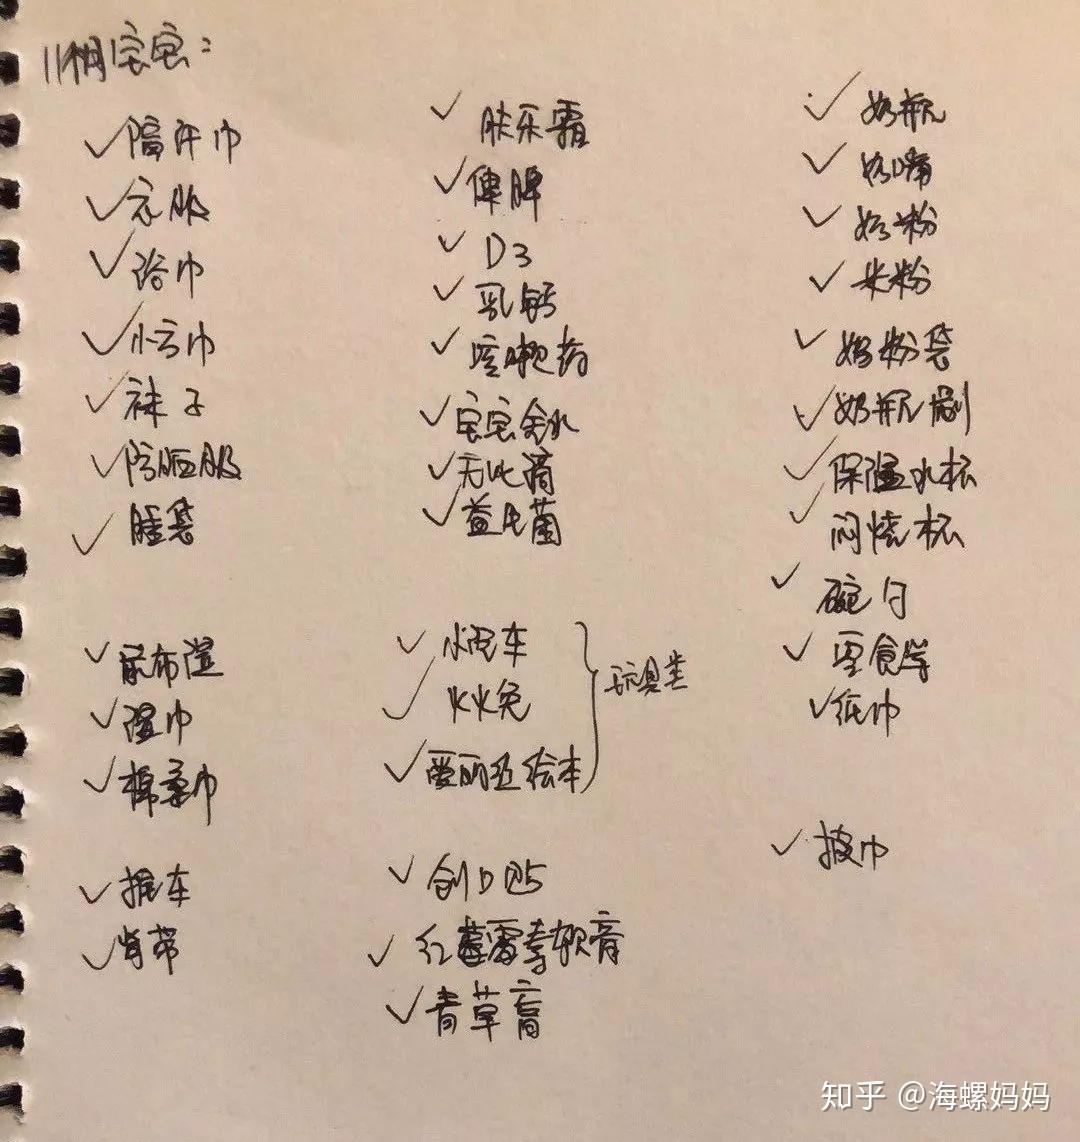 宝宝:
✓隔汗巾
✓衣服
✓浴巾
✓小方巾
✓袜子
✓防晒服
✓睡袋
✓尿布湿
✓湿巾
✓棉柔巾
✓推车
✓背带
✓肤乐霜
✓D3
✓乳钙
✓咳嗽药
✓宝宝金水
✓无比滴
✓益生菌
✓火车
✓火火兔
✓爱丽丝绘本
玩具类
✓创口贴
✓红霉素软膏
✓青草膏
✓奶瓶
✓奶嘴
✓奶粉
✓米粉
✓奶粉袋
✓奶瓶刷
✓保温水杯
✓闷烧杯
✓碗勺
✓零食等
✓纸巾
✓披巾
知乎 @海螺妈妈